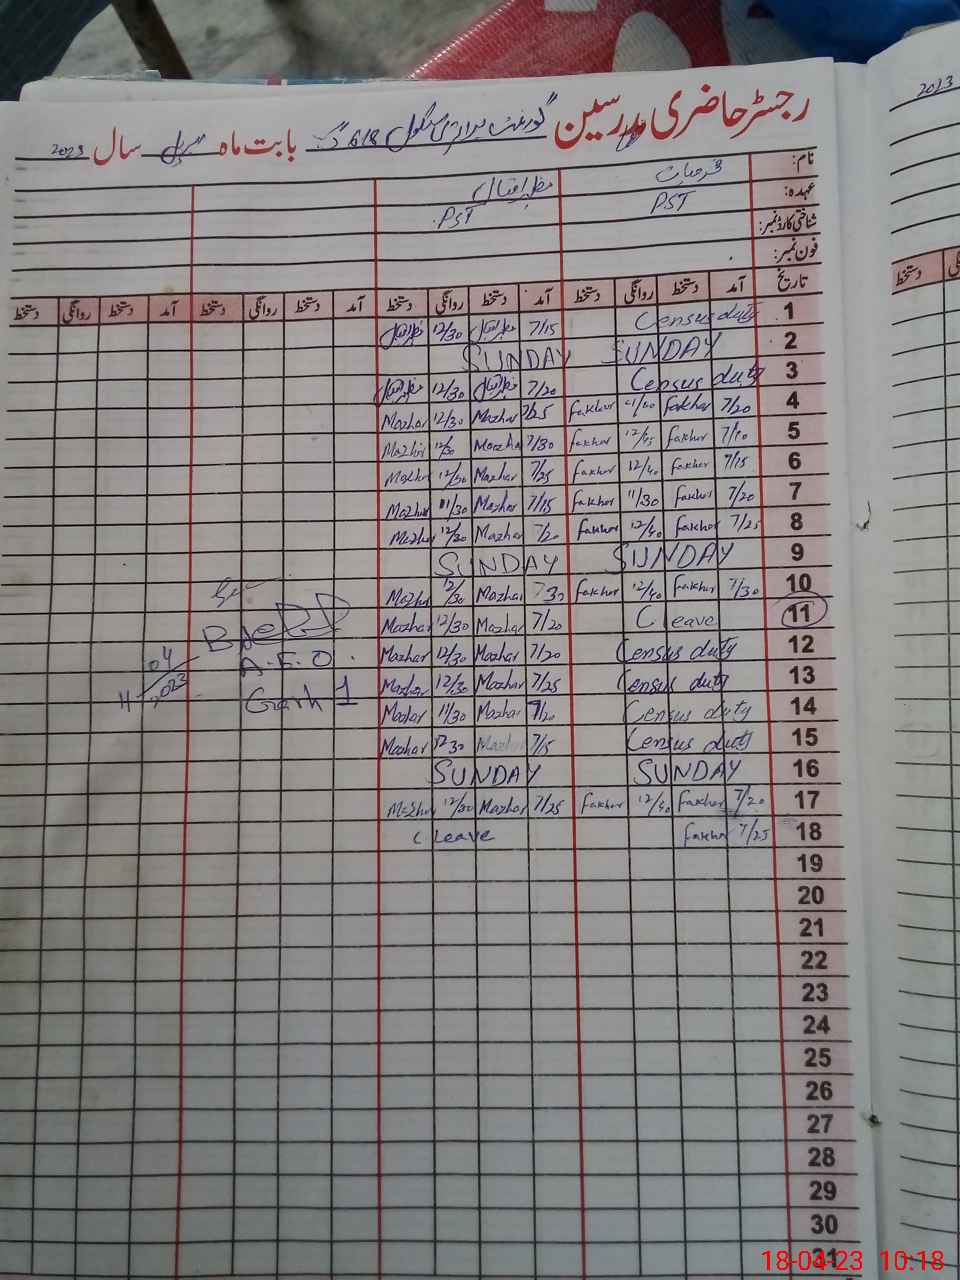 رجسٹر حاضری مدرسین گورنمنٹ پرائمری سکول 618 گ ب بابت ماہ اپریل سال 2023
2023
نام: فخر حیات مظہر اقبال
عہدہ: PST PST
شناختی کارڈ نمبر:
فون نمبر:
تاریخ آمد دستخط روانگی دستخط آمد دستخط روانگی دستخط آمد دستخط روانگی دستخط آمد دستخط روانگی دستخط
1 Census duty 7/15 مظہر اقبال 12/30 مظہر اقبال
2 SUNDAY SUNDAY
3 Census duty 7/20 مظہر اقبال 12/30 مظہر اقبال
4 7/20 Fakhar Fakhar 7/25 Mazhar 12/30 Mazhar
5 7/10 Fakhar 12/45 Fakhar 7/30 Mazhar 12/30 Mazhar
6 7/15 Fakhar 12/40 Fakhar 7/25 Mazhar 12/30 Mazhar
7 7/20 Fakhar 11/30 Fakhar 7/15 Mazhar 11/30 Mazhar
8 7/25 Fakhar 12/40 Fakhar 7/20 Mazhar 12/30 Mazhar
9 SUNDAY SUNDAY
10 7/30 Fakhar 12/40 Fakhar 7 30 Mazhar 12/30 Mazhar
11 C leave 7/20 Mazhar 12/30 Mazhar
12 Census duty 7/20 Mazhar 12/30 Mazhar
A.E.O.
13 Census duty 7/25 Mazhar 12/30 Mazhar
11/04/2023
14 Census duty 7/20 Mazhar 11/30 Mazhar
15 Census duty 7/15 Mazhar 12 30 Mazhar
16 SUNDAY SUNDAY
17 7/20 Fakhar 12/40 Fakhar 7/25 Mazhar 12/30 Mazhar
18 7/25 Fakhar C leave
19
20
21
22
23
24
25
26
27
28
29
30
31
18-04-23 10:18